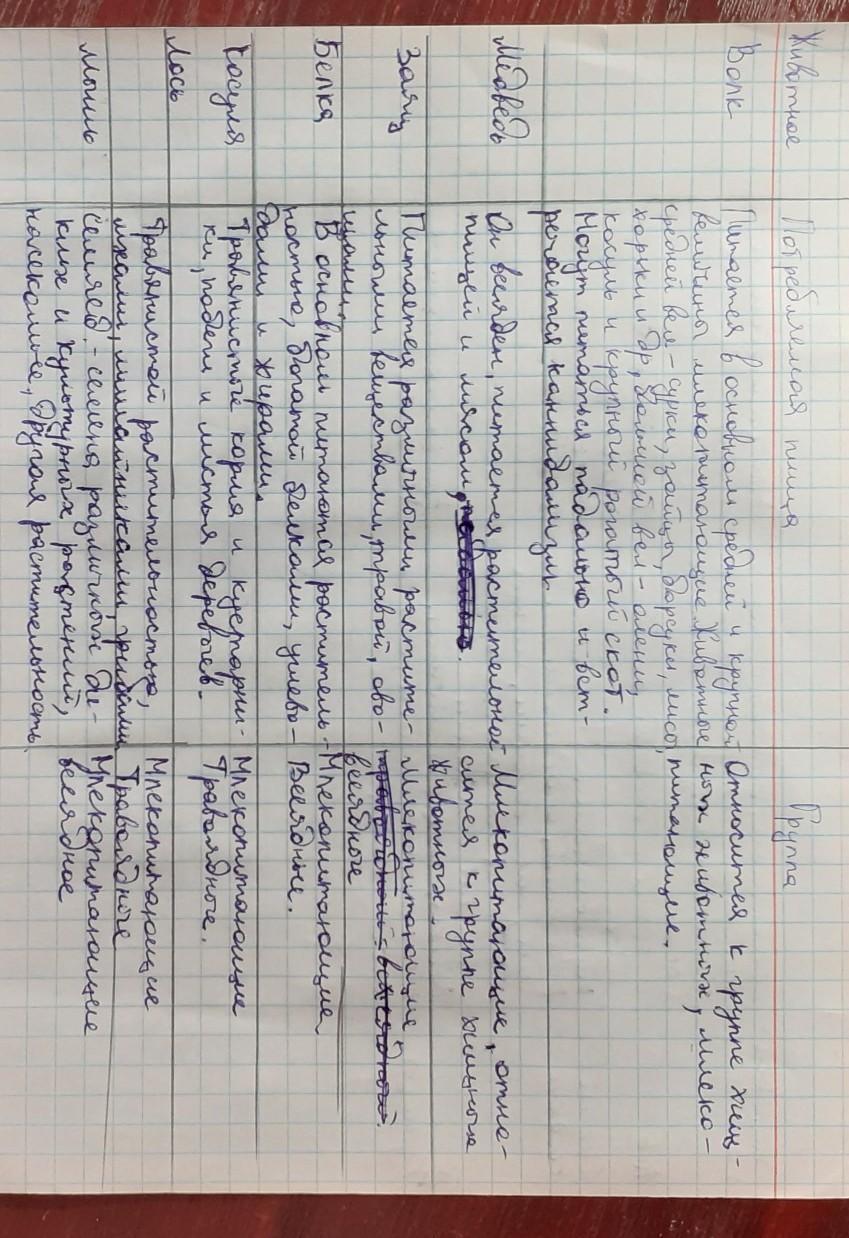 Животное Потребляемая пища Группа
Волк
Питается в основном средней и крупной
величины млекопитающие животные
средней вел - сурки, зайцы, барсуки, лисы,
хорьки и др, большой вел - олени,
косуль и крупный рогатый скот.
Могут питаться падалью и вст-
речается каннибализм
Относится к группе хищ-
ных животных, млеко-
питающие.
Медведь
Он всеяден, питается растительной
пищей и мясом,
Млекопитающие, отно-
сится к группе хищных
животных.
Заяц
Питается различными растите-
льными веществами, травой, ово-
щами.
Млекопитающие
всеядные
Белка
В основном питаются раститель-
ностью, богатой белками, углево-
дами и жирами.
Млекопитающие
Всеядные.
Косуля
Травянистые корма и кустарни-
ки, побеги и листья деревьев.
Млекопитающие
Травоядные.
Лось
Травянистой растительностью,
мхами, лишайниками, грибами
Млекопитающие
Травоядные
Мышь
Семяед. - семена различных ди-
ких и культурных растений,
насекомые, другая растительность
Млекопитающие
всеядное